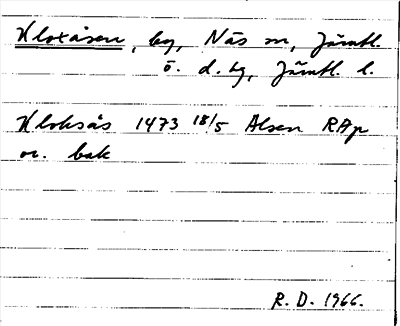 Kloxåsen, by, Näs sn, Jämtl.
ö. d. tg, Jämtl. l.
Kloksås 1473 18/5 Alsen RAp
or. bak
R. D. 1966.